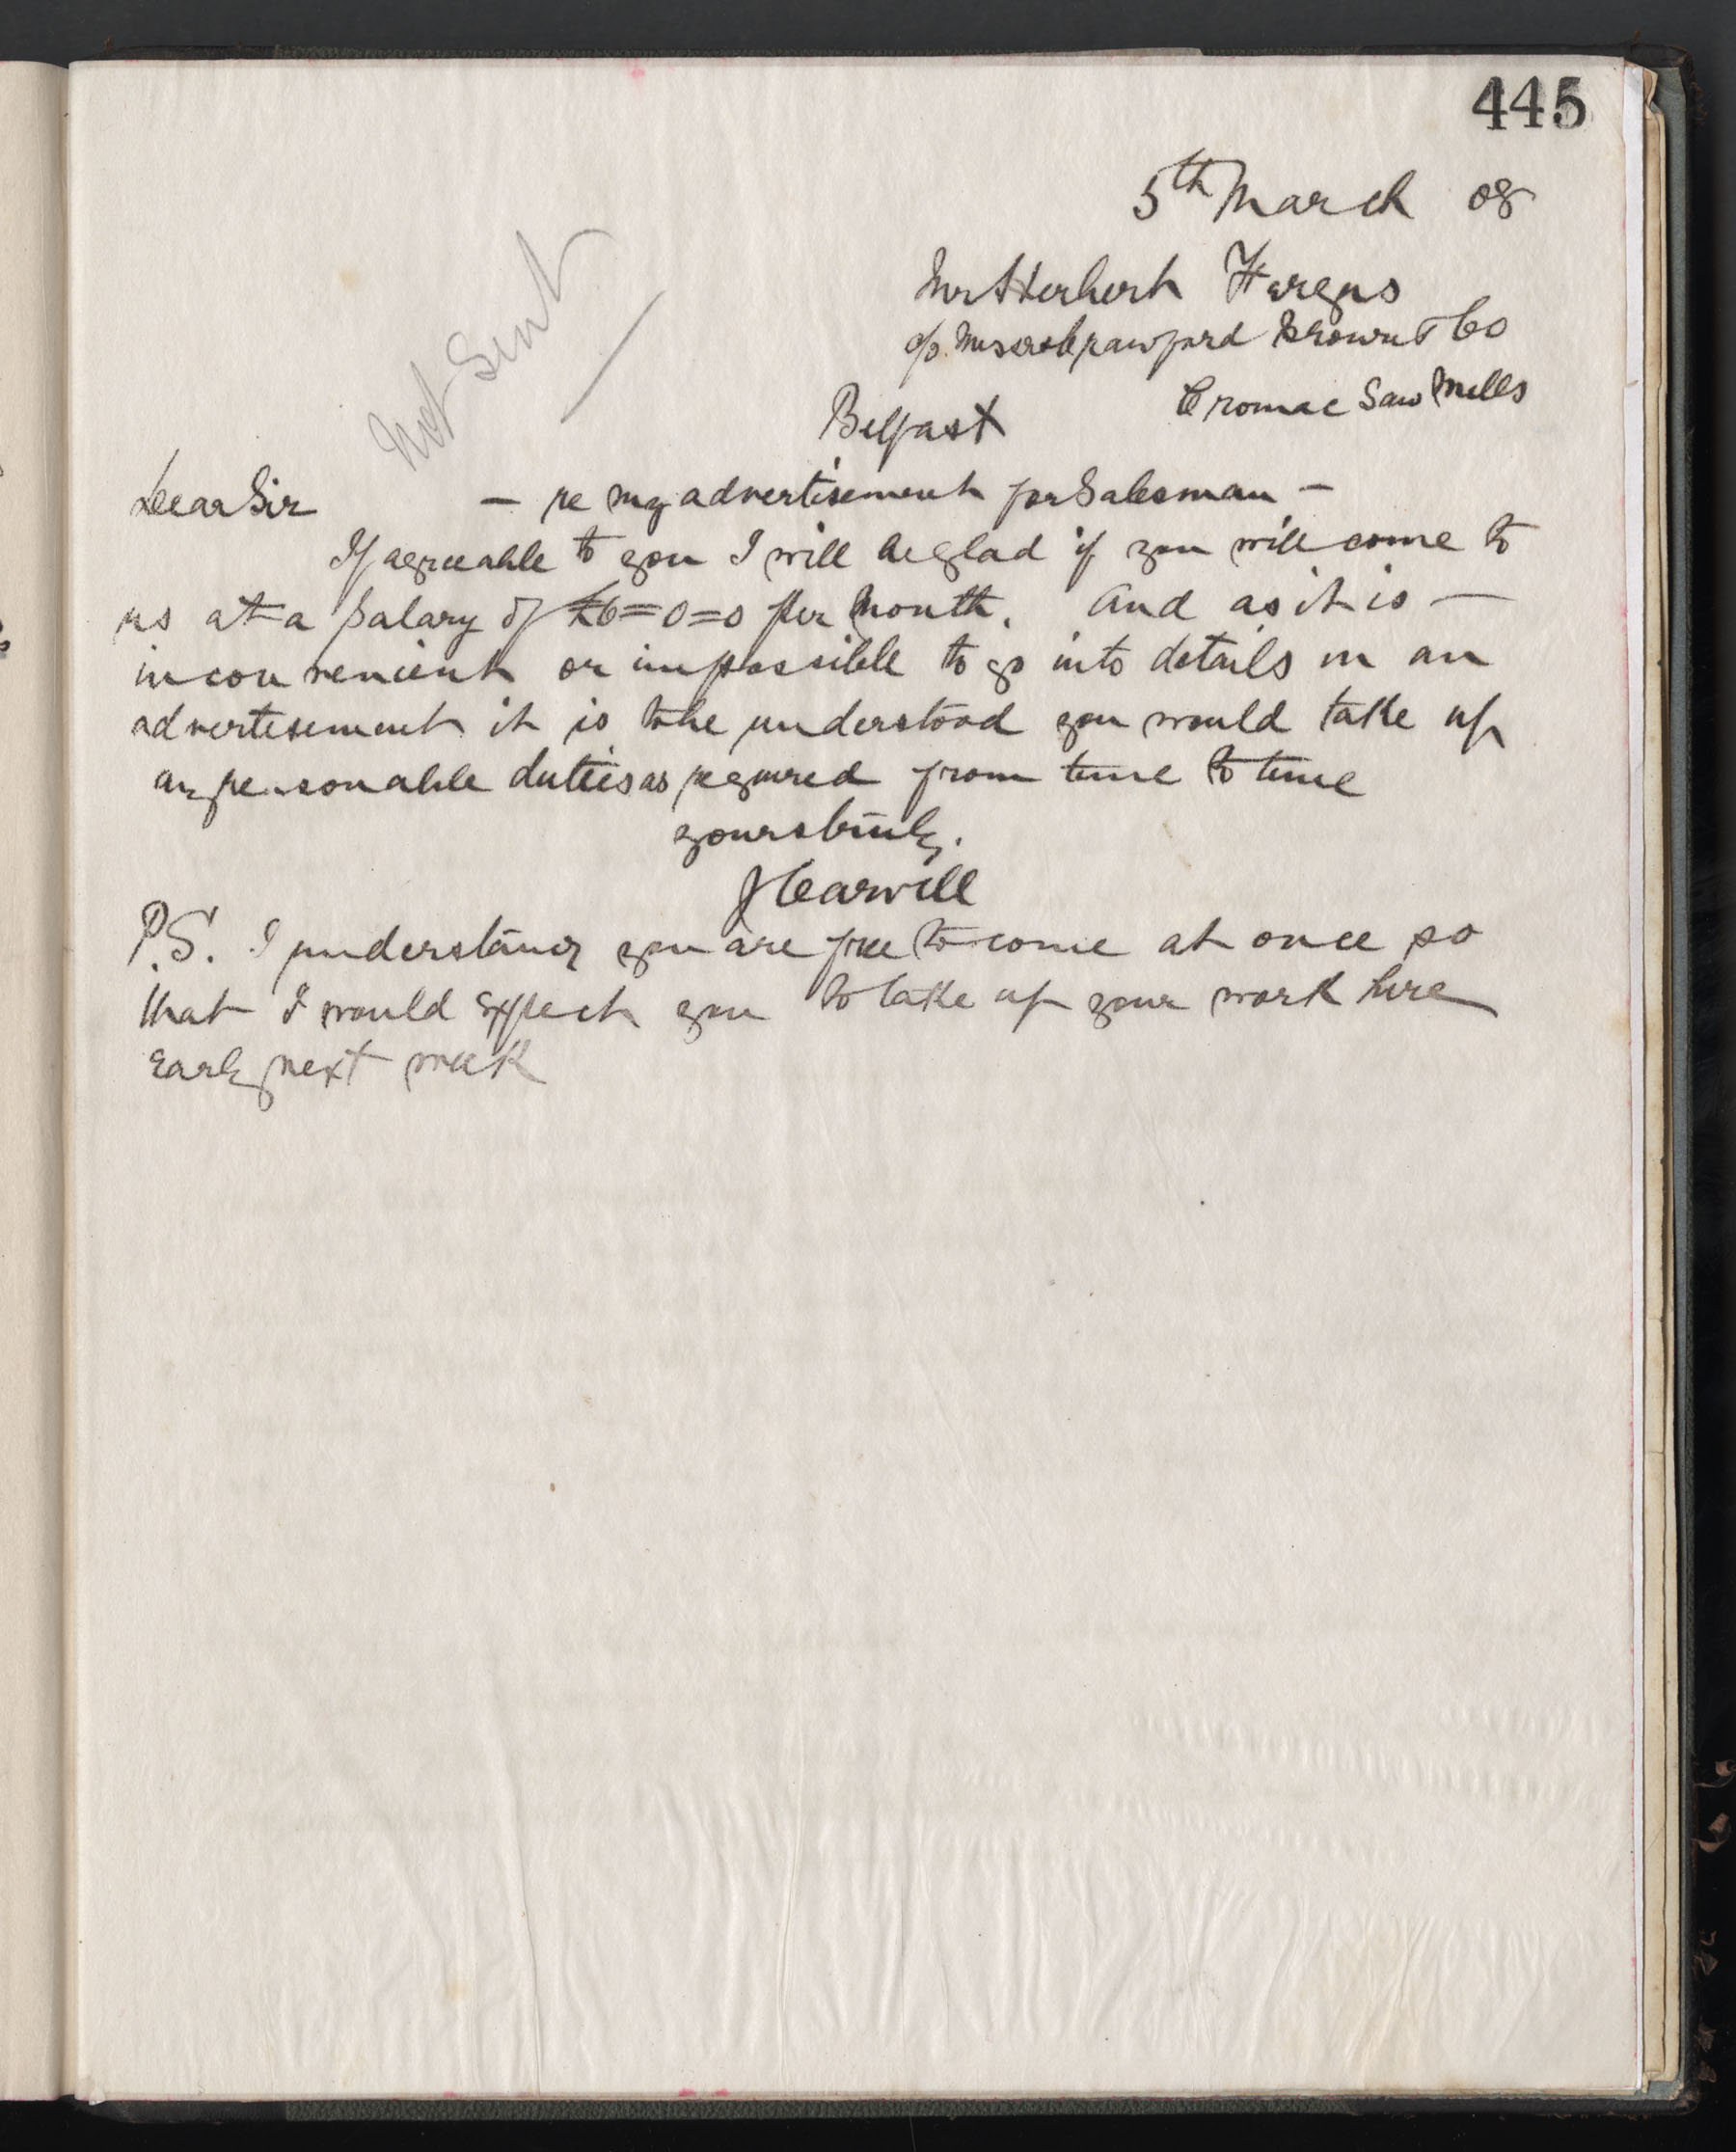 445
5th March 08
Mr Herbert Fergus
c/o Messrs Crawford Brown & Co
Cromac Saw Mills
Belfast
Not Sent
Dear Sir — re my advertisement for Salesman —
If agreeable to you I will be glad if you will come to
us at a salary of £6=0=0 per month. And as it is —
inconvenient or impossible to go into details in an
advertisement it is to be understood you would take up
any reasonable duties as required from time to time
yours truly.
J Carvill
P.S. I understand you are free to come at once so
that I would expect you to take up your work here
early next week